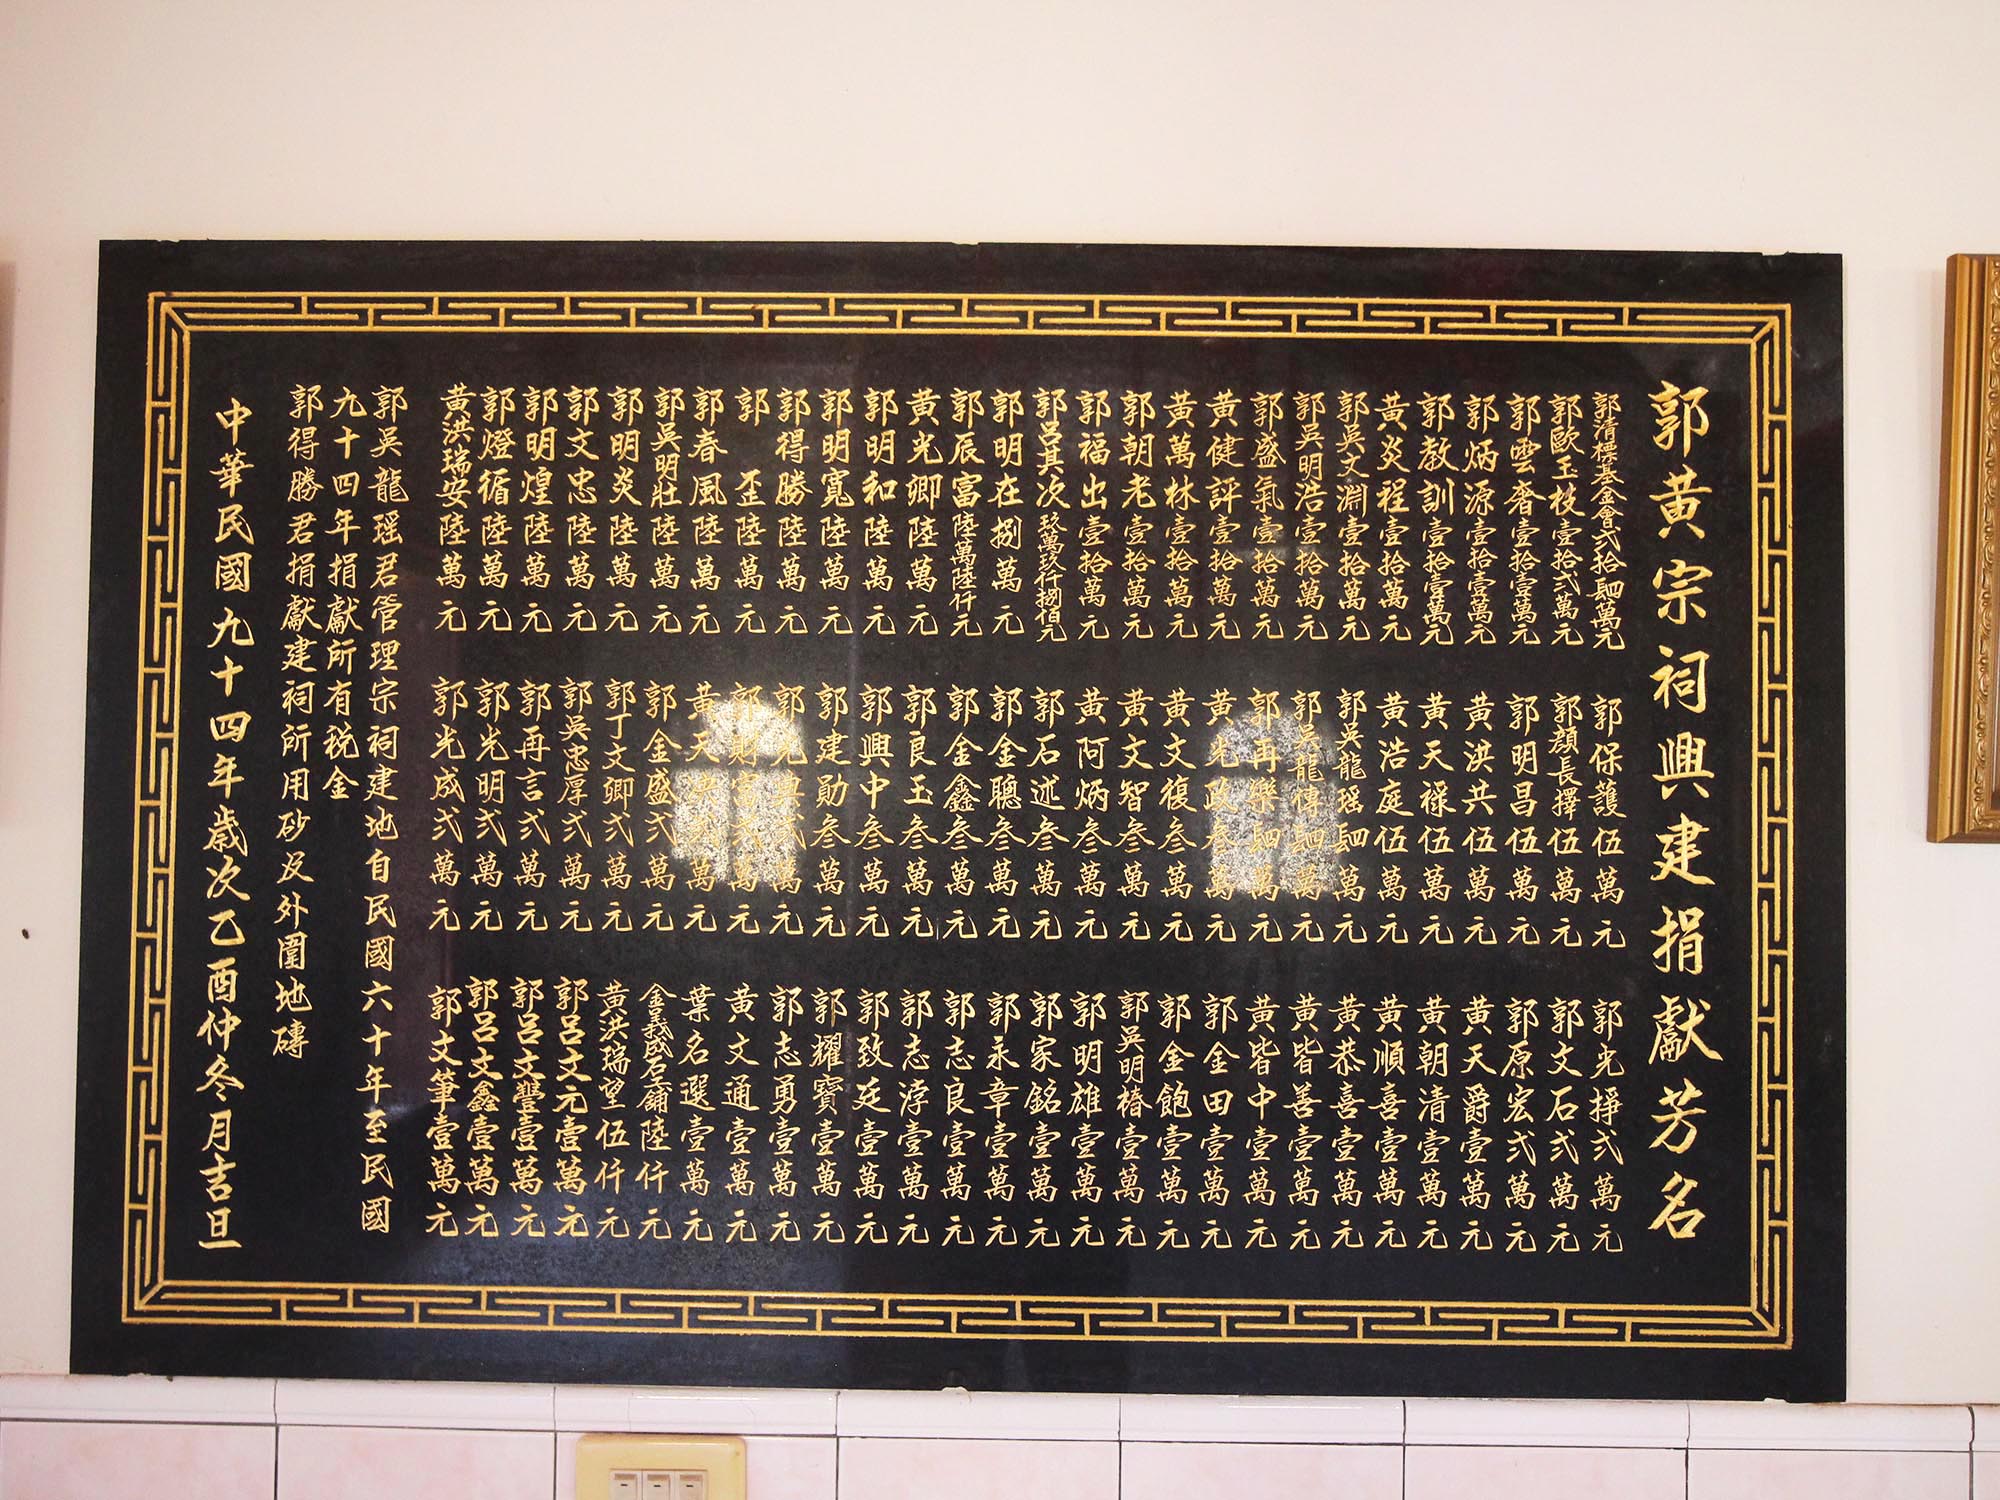 郭黃宗祠興建捐獻芳名
郭清標基金會弍拾肆萬元
郭歐玉枝壹拾弍萬元
郭雲奢壹拾壹萬元
郭炳源壹拾壹萬元
郭教訓壹拾壹萬元
黃炎程壹拾萬元
郭吳文淵壹拾萬元
郭吳明浩壹拾萬元
郭盛氣壹拾萬元
黃健評壹拾萬元
黃萬林壹拾萬元
郭朝老壹拾萬元
郭福出壹拾萬元
郭呂其次玖萬玖仟捌佰元
郭明在捌萬元
郭辰富陸萬陸仟元
黃光卿陸萬元
郭明和陸萬元
郭明寬陸萬元
郭得勝陸萬元
郭歪陸萬元
郭春風陸萬元
郭吳明壯陸萬元
郭明炎陸萬元
郭文忠陸萬元
郭明煌陸萬元
郭燈循陸萬元
黃洪瑞安陸萬元
郭保護伍萬元
郭顏長擇伍萬元
郭明昌伍萬元
黃洪共伍萬元
黃天祿伍萬元
黃浩庭伍萬元
郭吳龍瑤肆萬元
郭吳龍傳肆萬元
郭再樂肆萬元
黃光政叁萬元
黃文復叁萬元
黃文智叁萬元
黃阿炳叁萬元
郭石述叁萬元
郭金聰叁萬元
郭金鑫叁萬元
郭良玉叁萬元
郭興中叁萬元
郭建勛叁萬元
郭光興弍萬元
郭財富弍萬元
黃天洪弍萬元
郭金盛弍萬元
郭丁文卿弍萬元
郭吳忠厚弍萬元
郭再言弍萬元
郭光明弍萬元
郭光成弍萬元
郭光掙弍萬元
郭文石弍萬元
郭原宏弍萬元
黃天爵壹萬元
黃朝清壹萬元
黃順喜壹萬元
黃恭喜壹萬元
黃皆善壹萬元
黃皆中壹萬元
郭金田壹萬元
郭金飽壹萬元
郭吳明椿壹萬元
郭明雄壹萬元
郭家銘壹萬元
郭永章壹萬元
郭志良壹萬元
郭志浡壹萬元
郭致廷壹萬元
郭耀寶壹萬元
郭志勇壹萬元
黃文通壹萬元
葉名選壹萬元
金義成石鋪陸仟元
黃洪瑞望伍仟元
郭呂文元壹萬元
郭呂文豐壹萬元
郭呂文鑫壹萬元
郭文筆壹萬元
郭吳龍瑤君管理宗祠建地自民國六十年至民國
九十四年捐獻所有稅金
郭得勝君捐獻建祠所用砂及外圍地磚
中華民國九十四年歲次乙酉仲冬月吉旦